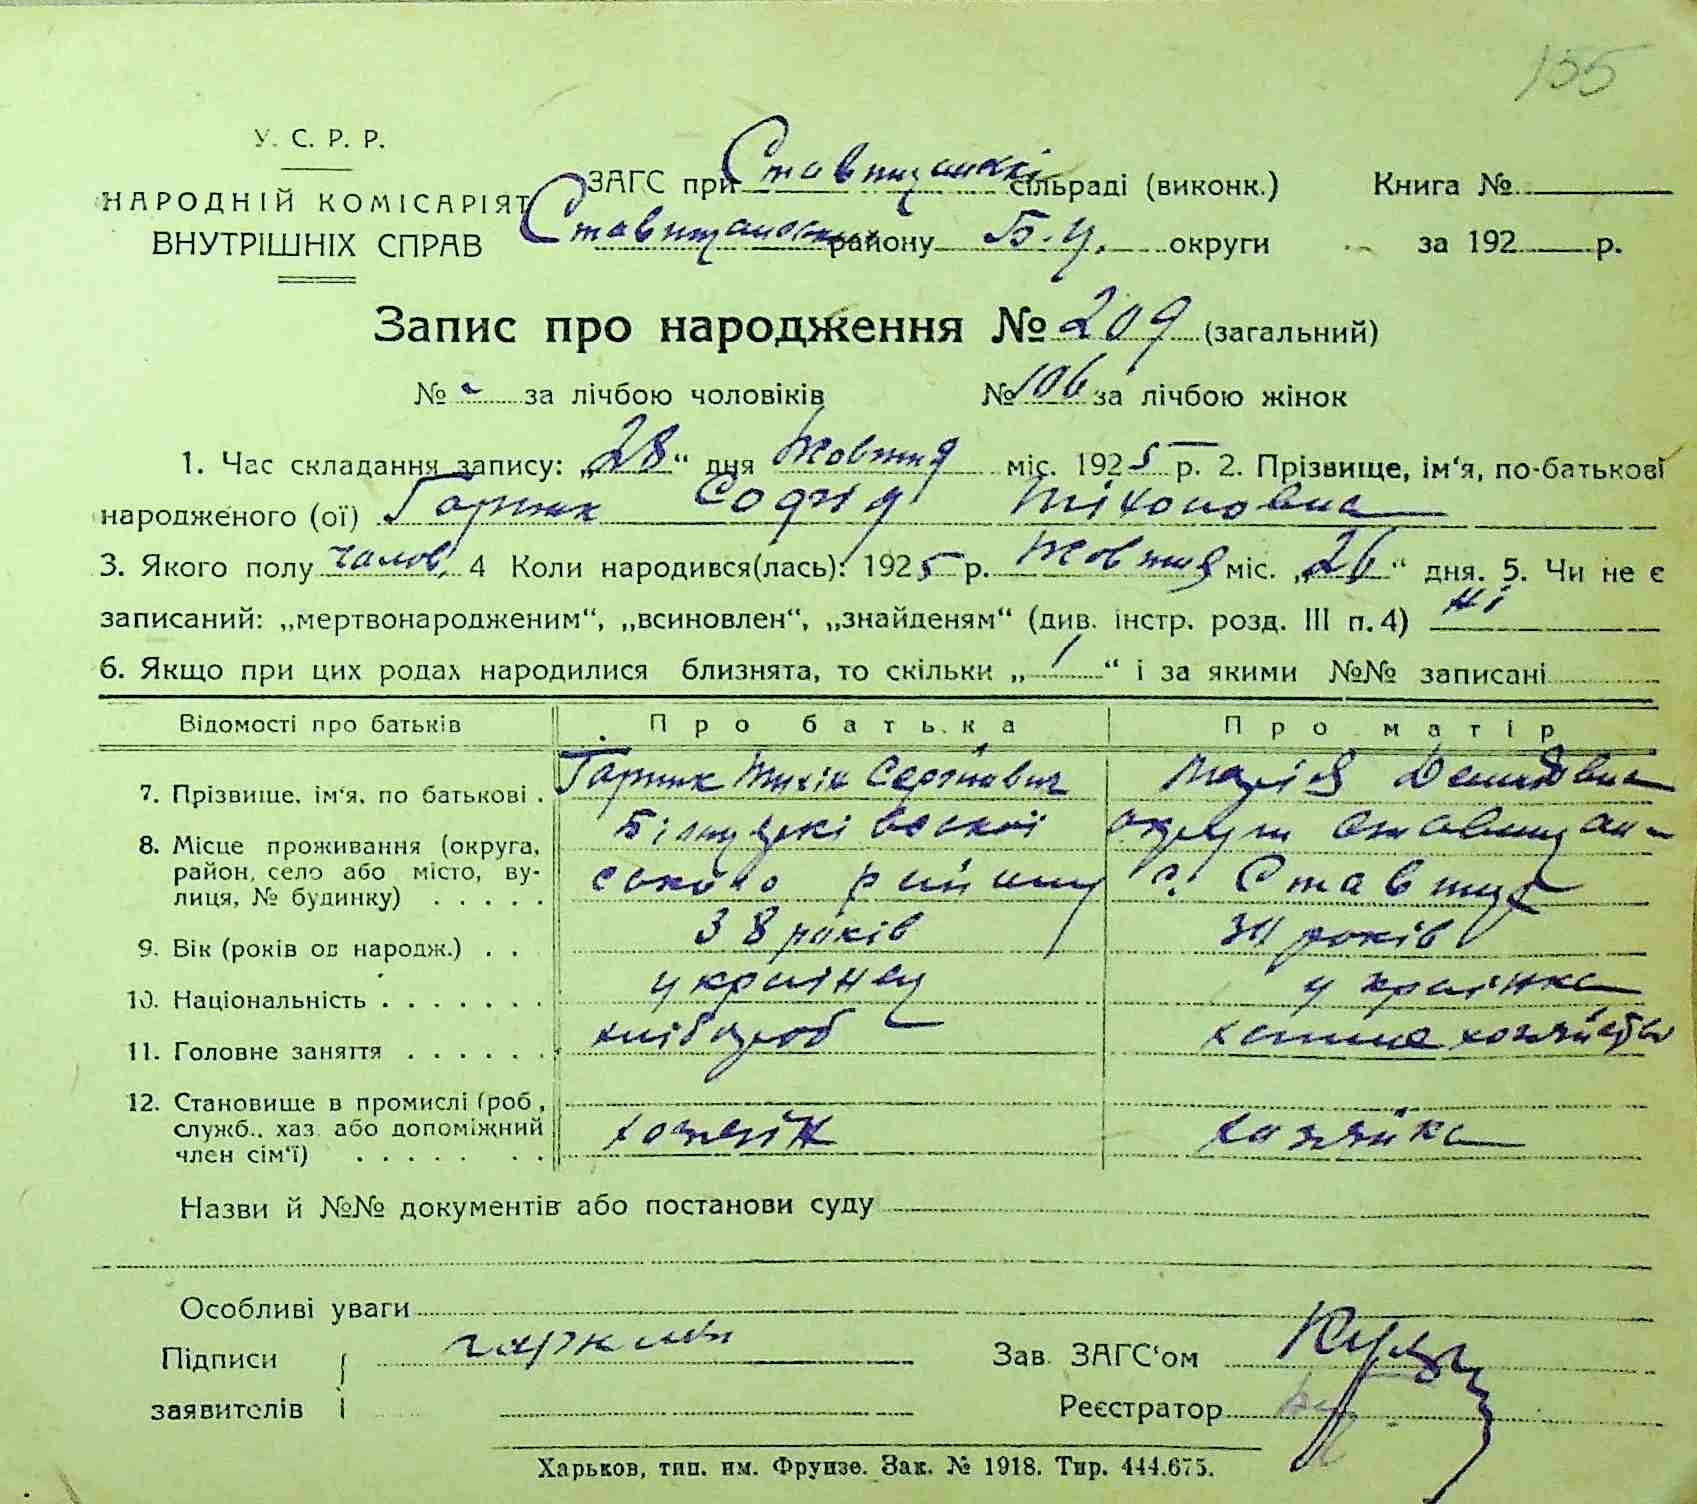 155
У. С. Р. Р.
НАРОДНІЙ КОМІСАРІЯТ
ВНУТРІШНІХ СПРАВ
ЗАГС при Ставищанскі сільраді (виконк.) Книга №
Ставищанськ району Б.Ц. округи за 192 р.
Запис про народження № 209 (загальний)
№ за лічбою чоловіків № 106 за лічбою жінок
1. Час складання запису: „28“ дня жовтня міс. 1925 р. 2. Прізвище, ім‘я, по-батькові
народженого (ої) Гаркик Софія Тіхоновна
3. Якого полу 4 Коли народився(лась): 1925 р. жовтня міс. „26“ дня. 5. Чи не є
записаний: „мертвонародженим“, „всиновлен“, „знайденям“ (див. інстр. розд. III п. 4) ні
6. Якщо при цих родах народилися близнята, то скільки „ “ і за якими №№ записані
Відомості про батьків Про батька Про матір
7. Прізвище, ім‘я, по батькові . Тихін Сергійович Марія
8. Місце проживання (округа, Білоцерківської округи Ставищан-
район, село або місто, ву- ського району с. Ставище
лиця, № будинку) . . . . .
9. Вік (років од народж.) . . 38 років років
10. Національність . . . . . . . українец українка
11. Головне заняття . . . . . . хлібороб хозяйство
12. Становище в промислі (роб.,
служб., хаз. або допоміжний хозяїн хазяйка
член сім‘ї) . . . . . . .
Назви й №№ документів або постанови суду
Особливі уваги
Підписи Зав. ЗАГС‘ом
заявителів Реєстратор
Харьков, тип. им. Фрунзе. Зак. № 1918. Тир. 444.675.